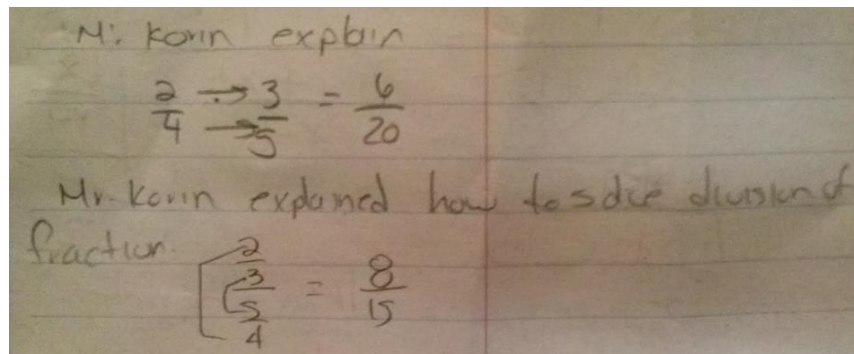 Mr. Korin explain
2/4 → 3/5 = 6/20
Mr. Korin explained how to solve division of
fraction.
2/3 / 5/4 = 8/15